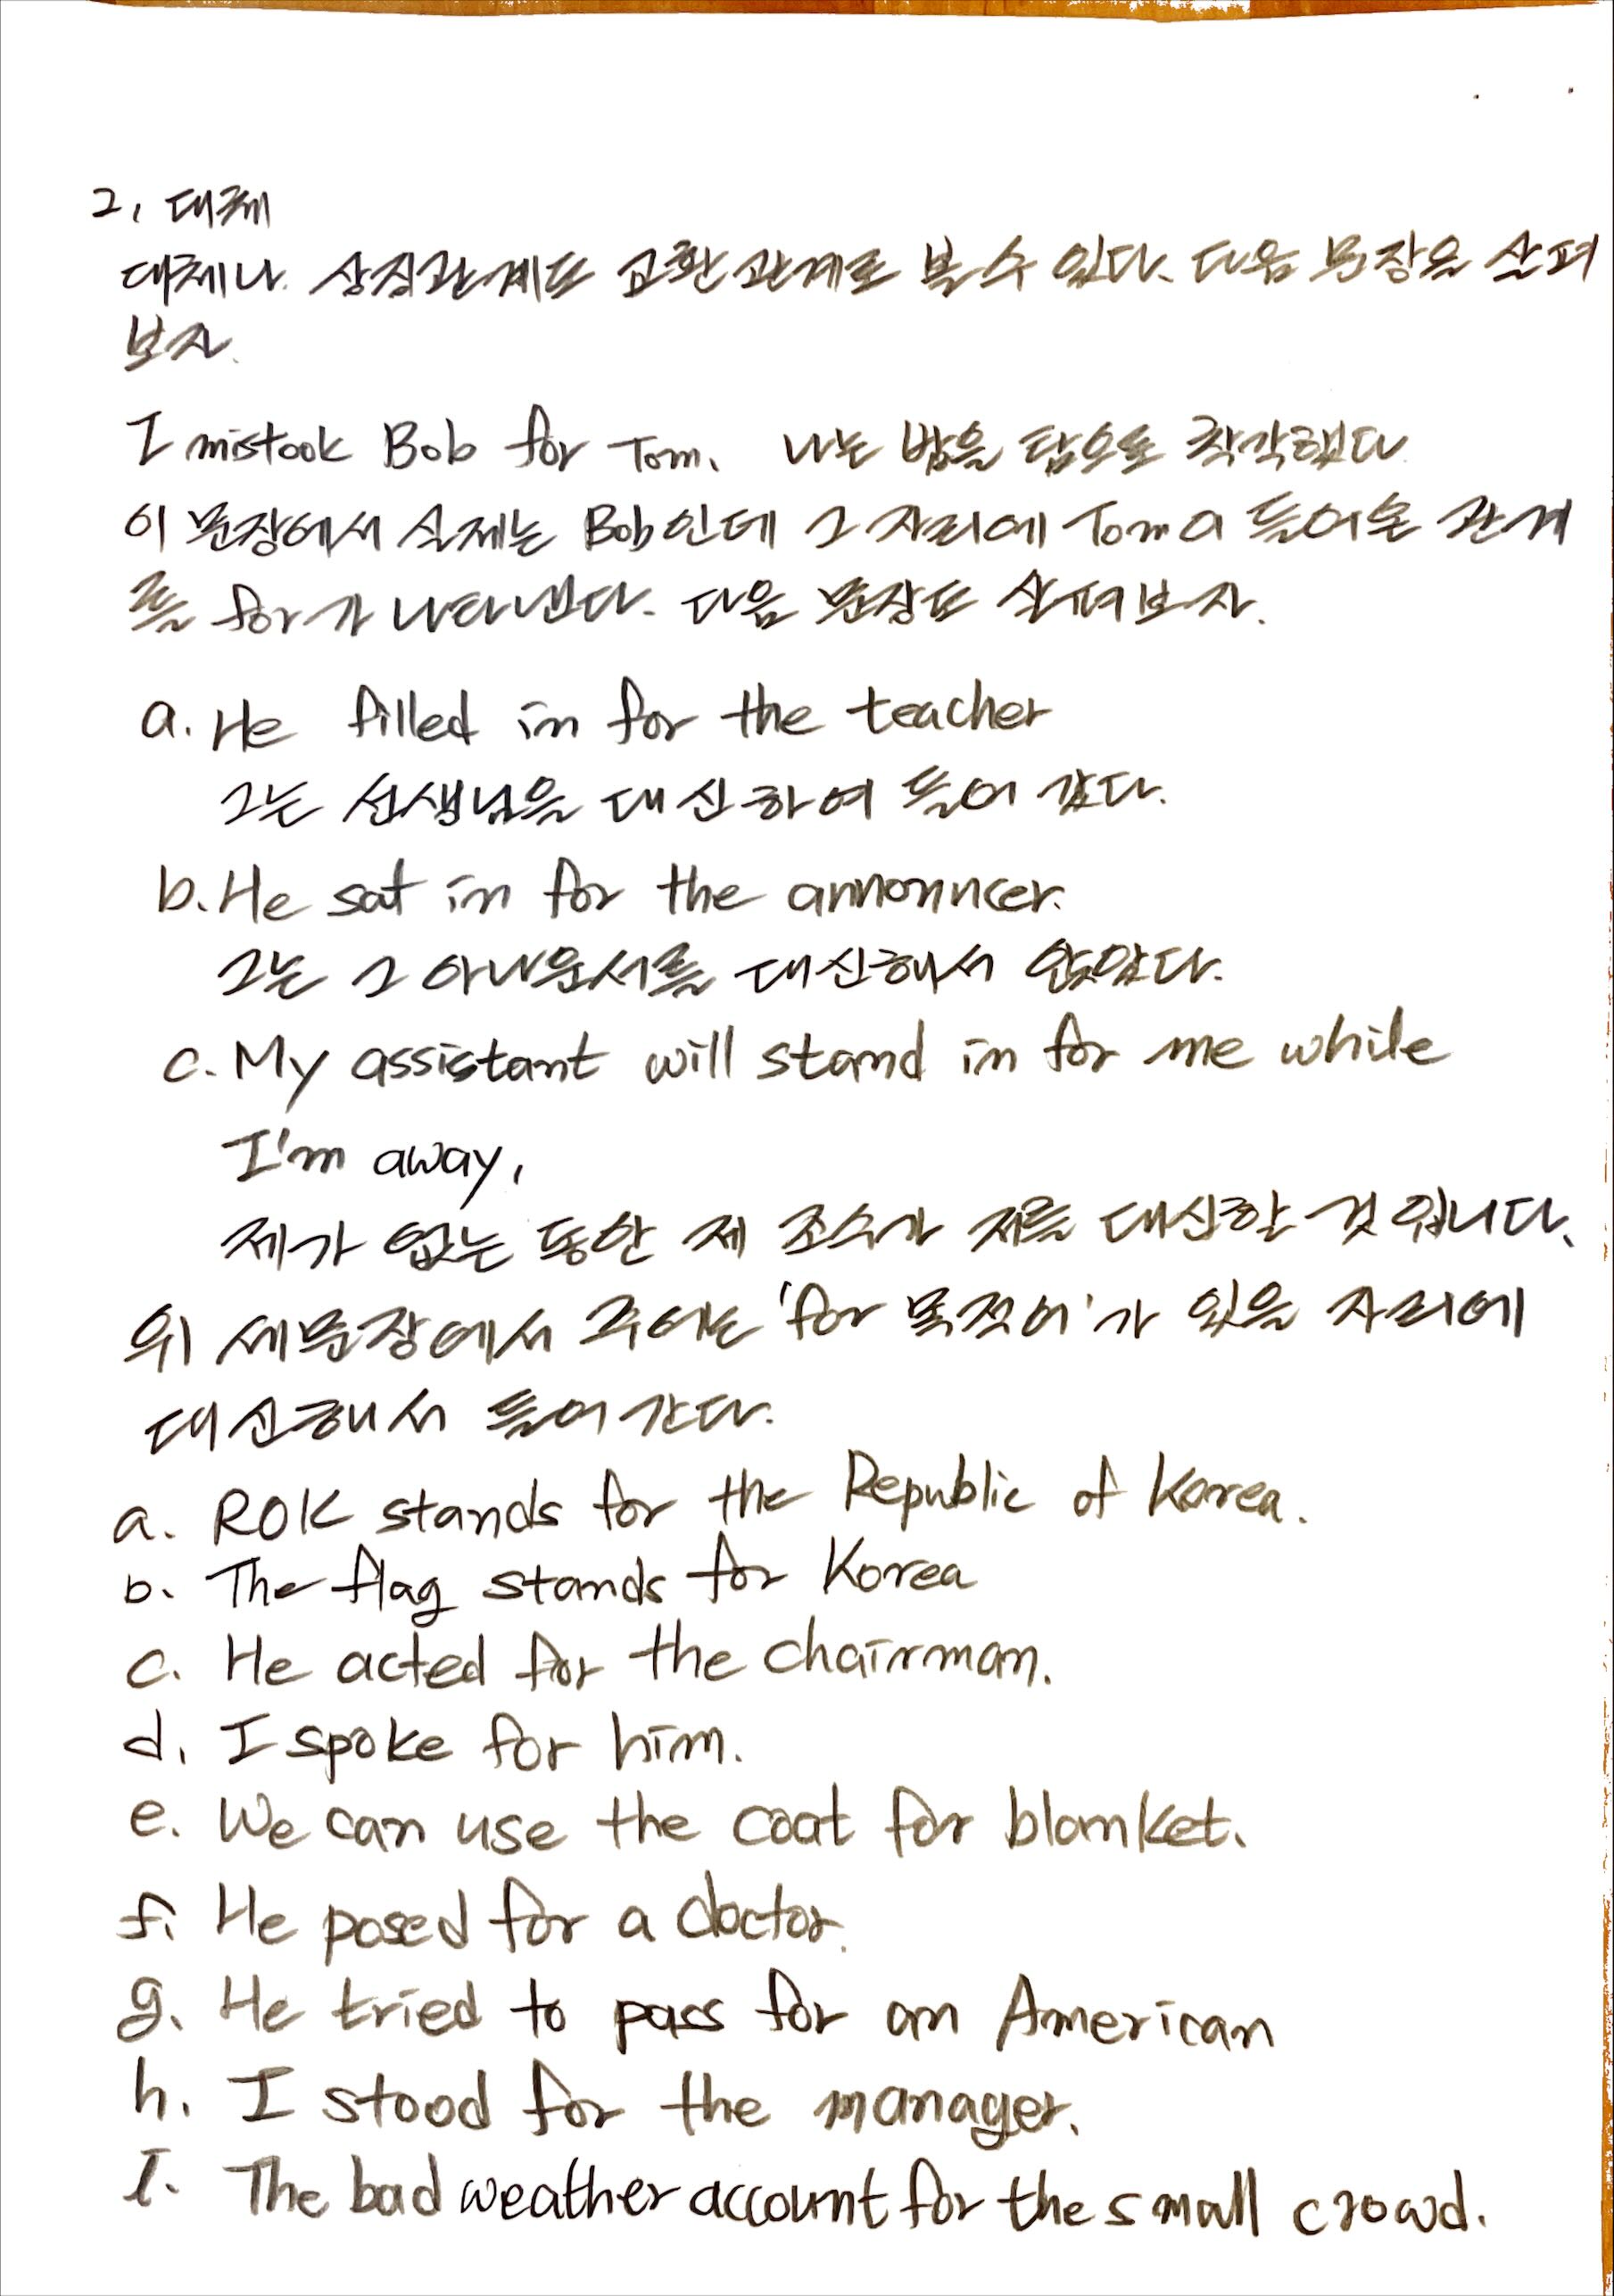 2. 대체
대체나 상징관계도 교환관계로 볼 수 있다. 다음 문장을 살펴
보자.
I mistook Bob for Tom. 나는 밥을 탐으로 착각했다
이 문장에서 실제는 Bob인데 그 자리에 Tom이 들어온 관계
를 for가 나타낸다. 다음 문장도 살펴보자.
a. He filled in for the teacher
그는 선생님을 대신하여 들어 갔다.
b. He sat in for the announcer.
그는 그 아나운서를 대신해서 앉았다.
c. My assistant will stand in for me while
I'm away,
제가 없는 동안 제 조수가 저를 대신할 것 입니다.
위 세문장에서 주어는 'for 목적어'가 있을 자리에
대신해서 들어 간다.
a. ROK stands for the Republic of Korea.
b. The flag stands for Korea
c. He acted for the chairman.
d. I spoke for him.
e. We can use the coat for blanket.
f. He posed for a doctor.
g. He tried to pass for an American
h. I stood for the manager.
I. The bad weather account for the small crowd.